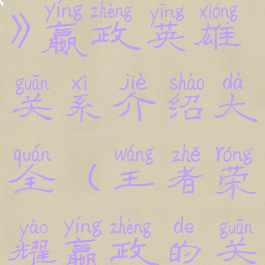 yíng zhèng yīng xióng
》嬴政英雄
guān xì jiè shào dà
关系介绍大
quán wáng zhě róng
全（王者荣
yào yíng zhèng de guān
耀嬴政的关